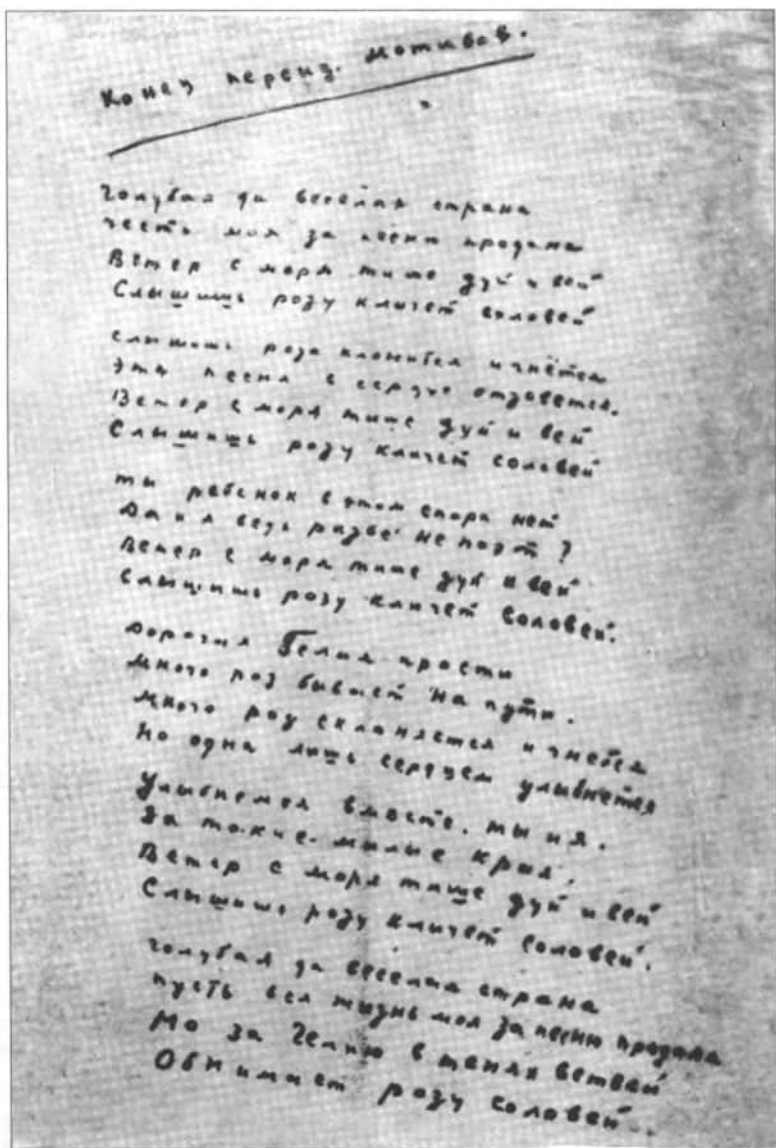 Конец персид. мотивов.
Голубая да веселая страна
честь моя за песни продана
Ветер с моря тише дуй и вей
Слышишь розу кличет соловей
слышишь роза клонится и гнётся
Эта песня в сердце отзовется.
Ветер с моря тише дуй и вей
Слышишь розу кличет соловей
ты ребенок в этом спора нет
Да и я ведь разве не поэт?
Ветер с моря тише дуй и вей
Слышишь розу кличет соловей.
Дорогая Гелия прости
Много роз бывает на пути.
Много роз склоняется и гнется
Но одна лишь сердцем улыбнется
Улыбнемся вместе. ты и я.
За такие милые края.
Ветер с моря тише дуй и вей
Слышишь розу кличет соловей.
Голубая да веселая страна
пусть вся жизнь моя за песню продана
Но за Гелию в тенях ветвей
Обнимает розу соловей..